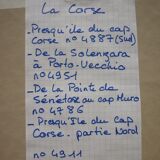 La Corse
- Presqu'île du cap
Corse n° 4887 (Sud)
- De la Solenzara
à Porto-Vecchio
n° 4951
- De la Pointe de
Sénétose au cap Muro
n° 4786
- Presqu'île du Cap
Corse. partie Nord
n° 4911